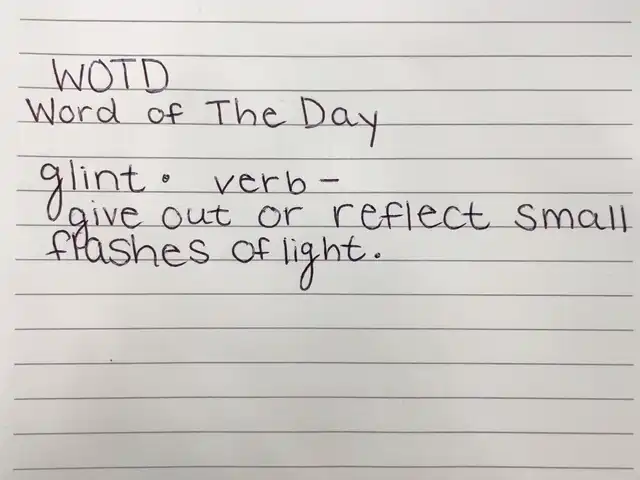 WOTD
Word of The Day
glint. verb-
give out or reflect small
flashes of light.